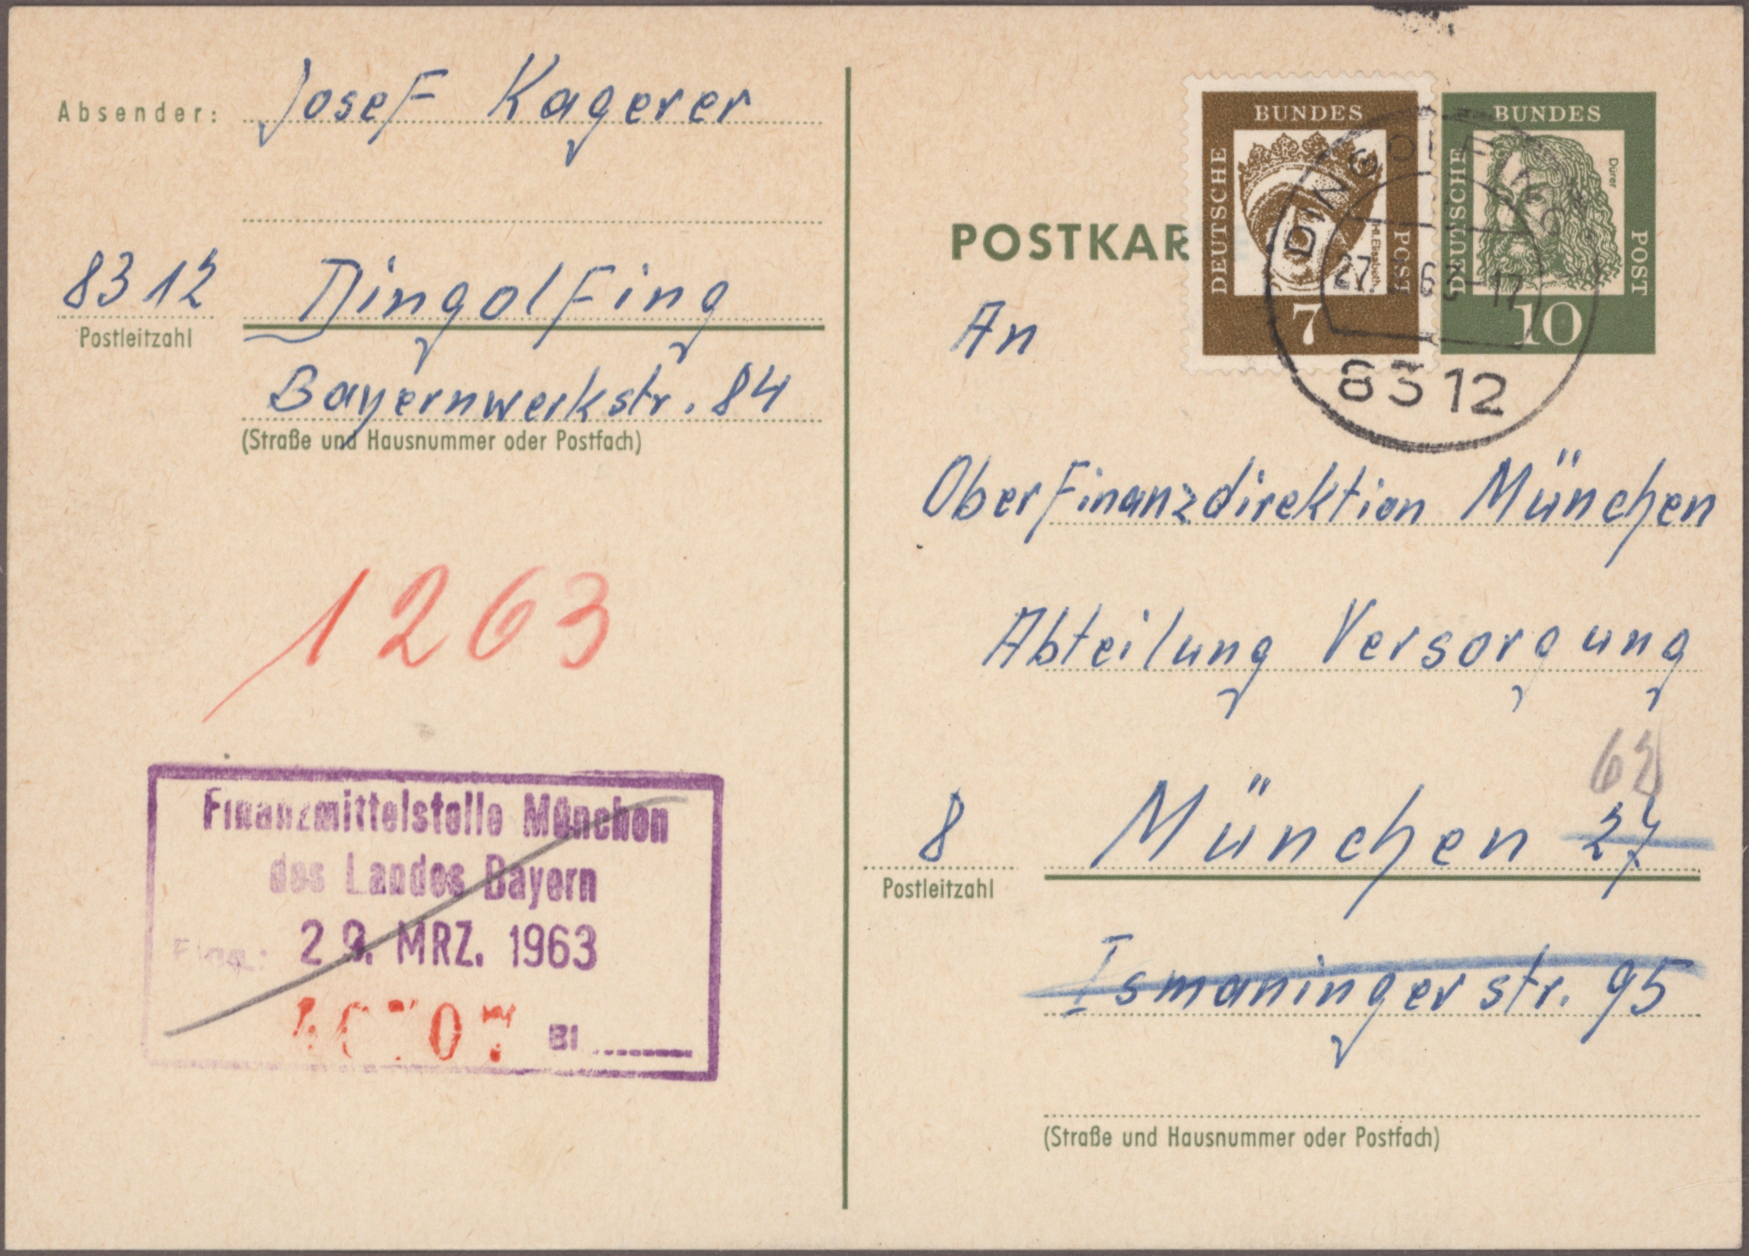 Absender: Josef Kagerer
8312 Dingolfing
Postleitzahl
Bayernwerkstr. 84
(Straße und Hausnummer oder Postfach)
1263
Finanzmittelstelle München
des Landes Bayern
29. MRZ. 1963
Bl.
DEUTSCHE BUNDES POST
Hl. Elisabeth
7
DEUTSCHE BUNDES POST
Dürer
10
DINGOLFING
8312
POSTKAR
An
Oberfinanzdirektion München
Abteilung Versorgung
62
8 München 27
Postleitzahl
Ismaningerstr. 95
(Straße und Hausnummer oder Postfach)